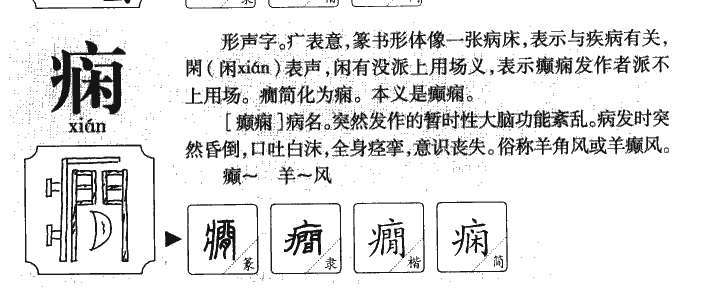 痫
xián
形声字。疒表意，篆书形体像一张病床，表示与疾病有关，
閑（闲xián）表声，闲有没派上用场义，表示癫痫发作者派不
上用场。癇简化为痫。本义是癫痫。
［癫痫］病名。突然发作的暂时性大脑功能紊乱。病发时突
然昏倒，口吐白沫，全身痉挛，意识丧失。俗称羊角风或羊癫风。
癫～　羊～风
癇 篆
癇 隶
癇 楷
痫 简